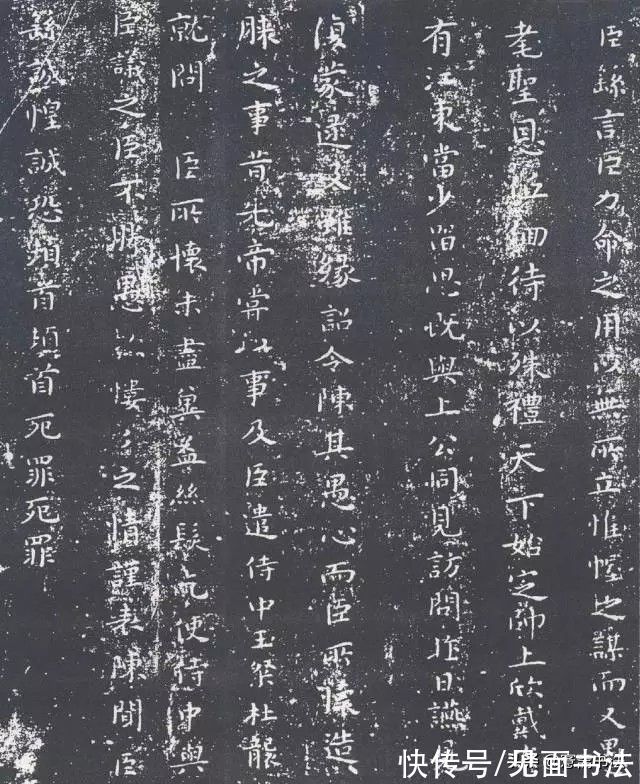 臣繇言臣力命之用以無所立惟幄之謀而又愚
耄聖恩低佪待以殊禮天下始定師上欣戴
有江東當少留思既與上公同見訪問昨日讌
復蒙逮及雖緣詔令陳其愚心而臣所懷造
膝之事昔先帝嘗以事及臣遣侍中王粲杜襲
就問 臣所懷未盡冀益絲髮乞使侍中與
臣議之臣不勝愚款慺々之情謹表陳聞臣
繇誠惶誠恐頓首頓首死罪死罪
快传号/见面书法